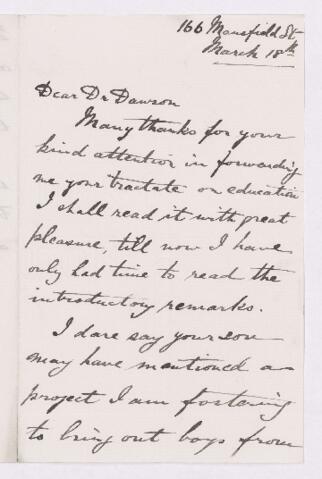 166 Mansfield St
March 18th
Dear Dr Dawson
Many thanks for your
kind attention in forwarding
me your tractate on education
I shall read it with great
pleasure, till now I have
only had time to read the
introductory remarks.
I dare say your son
may have mentioned a
project I am fostering
to bring out boys from